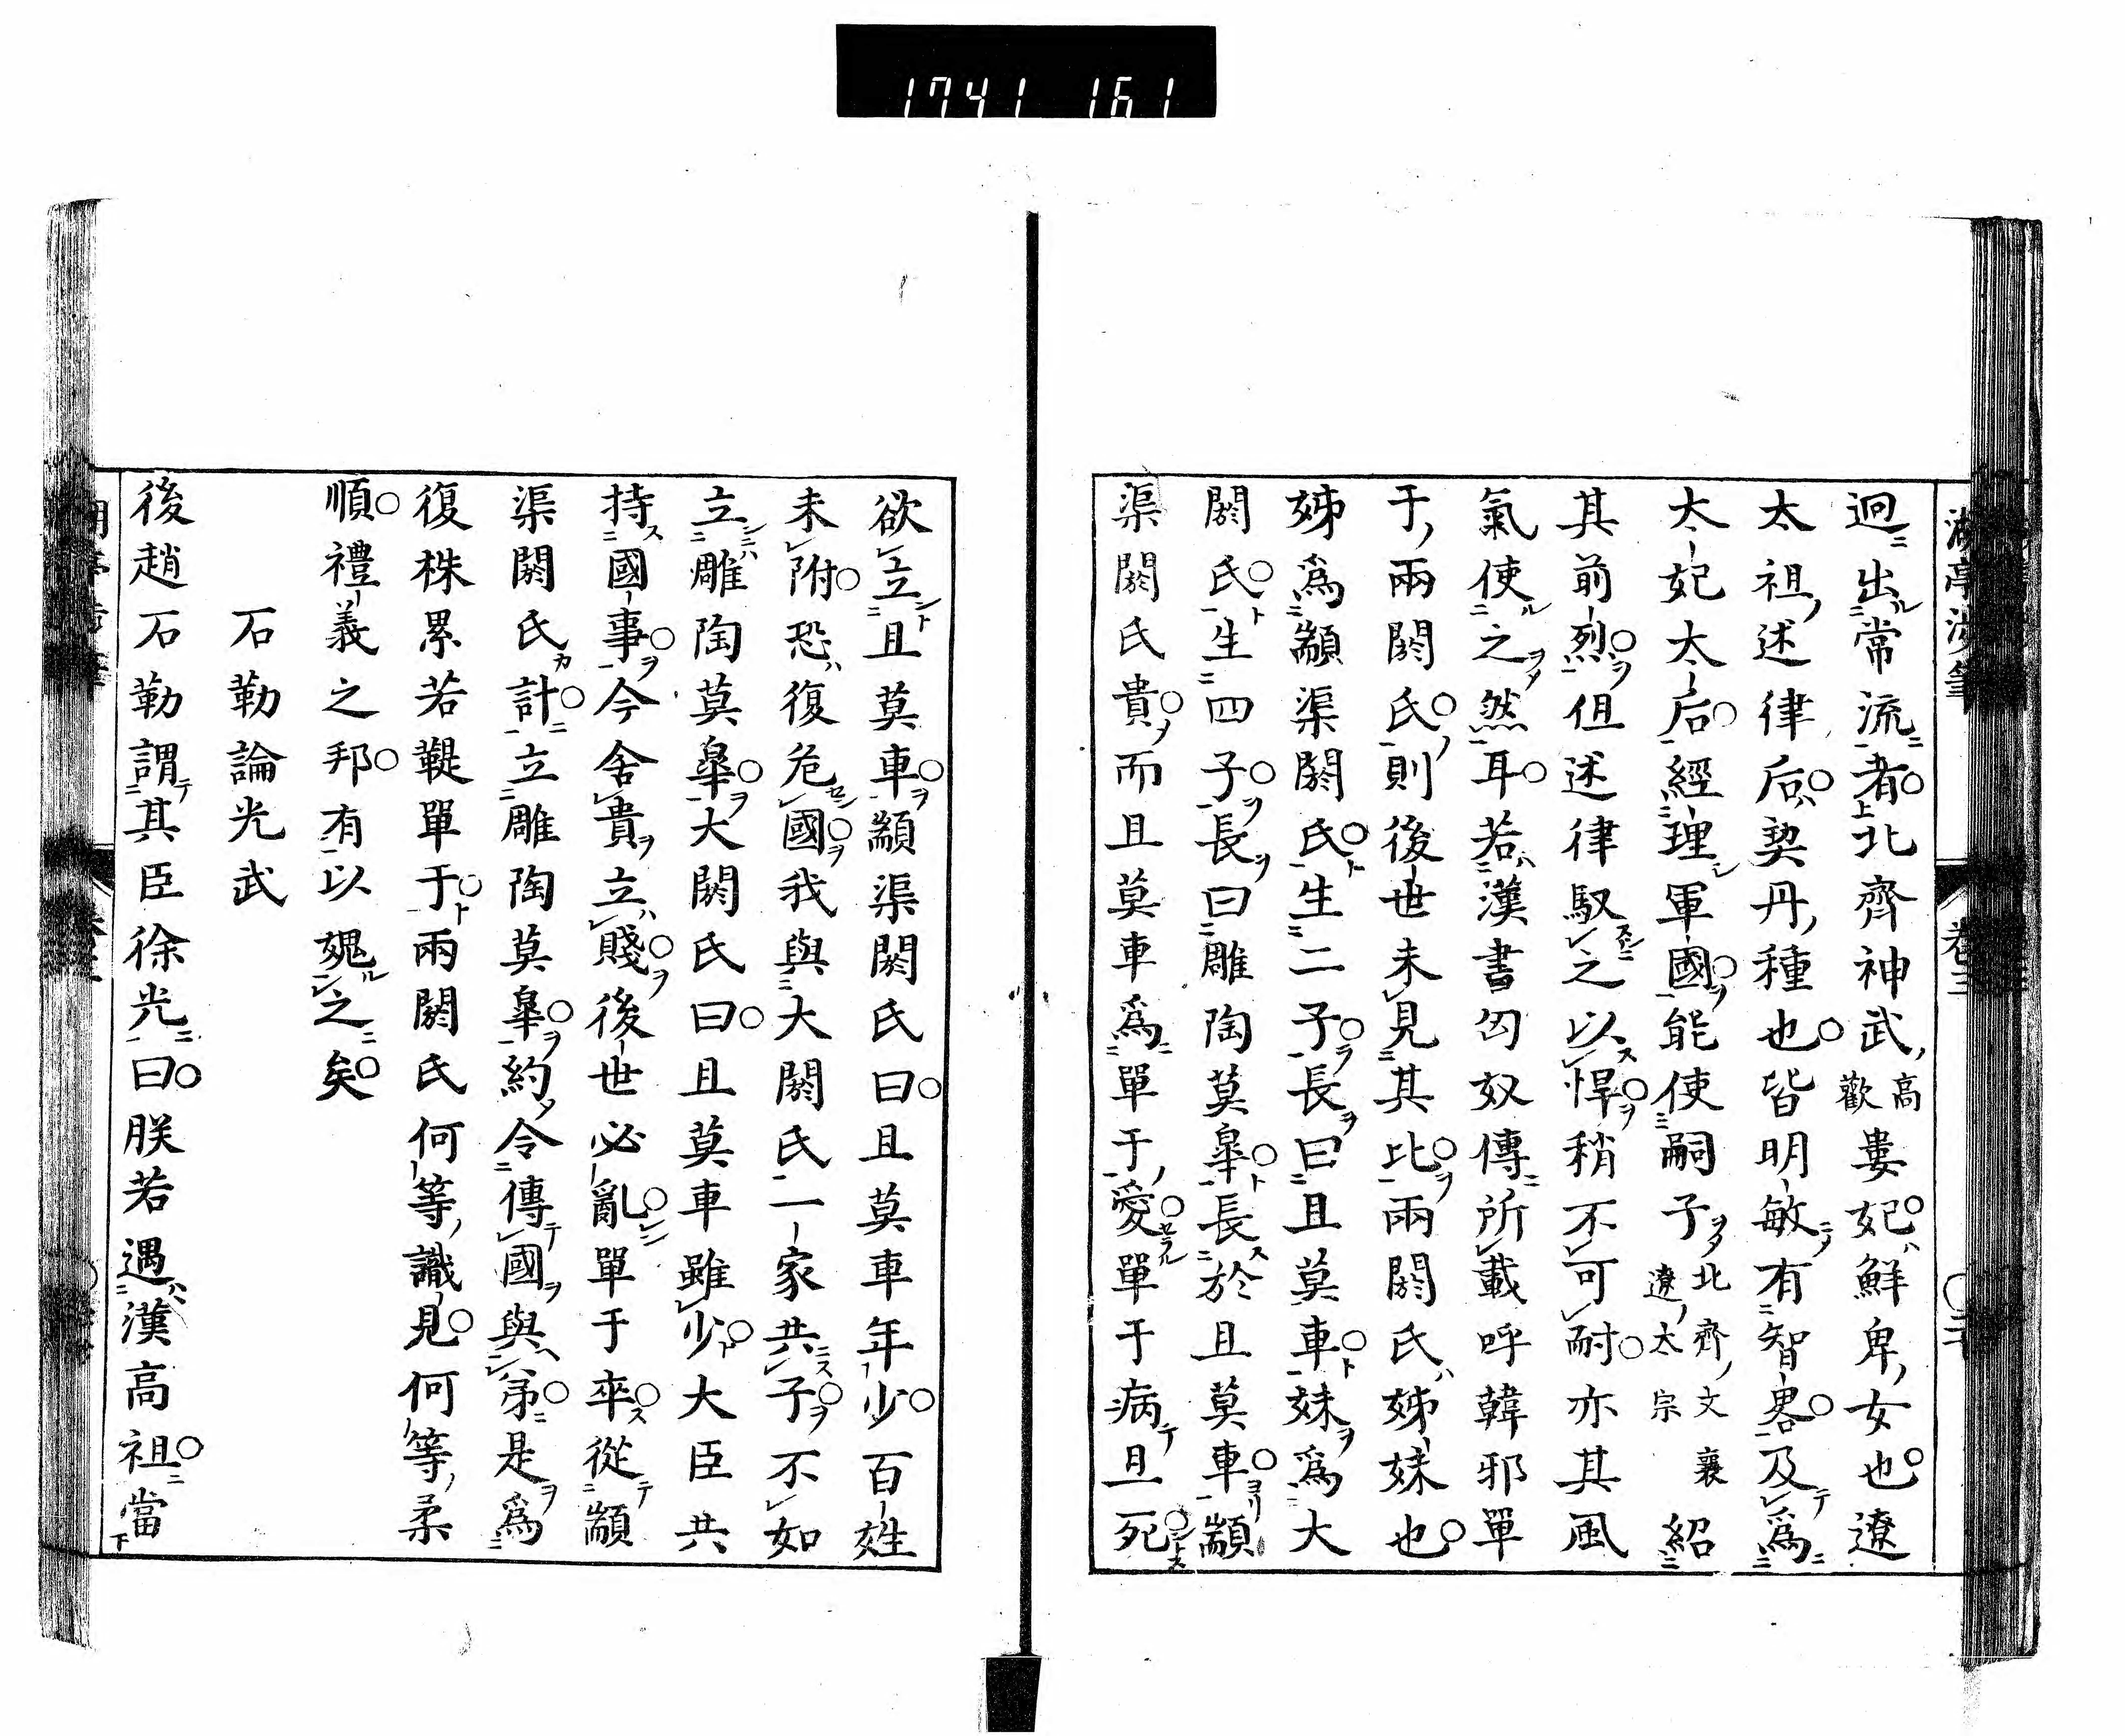 1741 161
迥出常流者北齊神武高歡婁妃鮮卑女也遼
太祖述律后契丹種也皆明敏有智畧及爲
太妃太后經理軍國能使嗣子北齊文襄遼太宗紹
其前烈但述律馭之以悍稍不可耐亦其風
氣使之然耳若漢書匈奴傳所載呼韓邪單
于兩閼氏則後世未見其比兩閼氏姊妹也
姊爲顓渠閼氏生二子長曰且莫車妹爲大
閼氏生四子長曰雕陶莫皋長於且莫車顓
渠閼氏貴而且莫車爲單于愛單于病且死
欲立且莫車顓渠閼氏曰且莫車年少百姓
未附恐復危國我與大閼氏一家共子不如
立雕陶莫皋大閼氏曰且莫車雖少大臣共
持國事今舍貴立賤後世必亂單于卒從顓
渠閼氏計立雕陶莫皋約令傳國與弟是爲
復株累若鞮單于兩閼氏何等識見何等柔
順禮義之邦有以媿之矣
石勒論光武
後趙石勒謂其臣徐光曰朕若遇漢高祖當